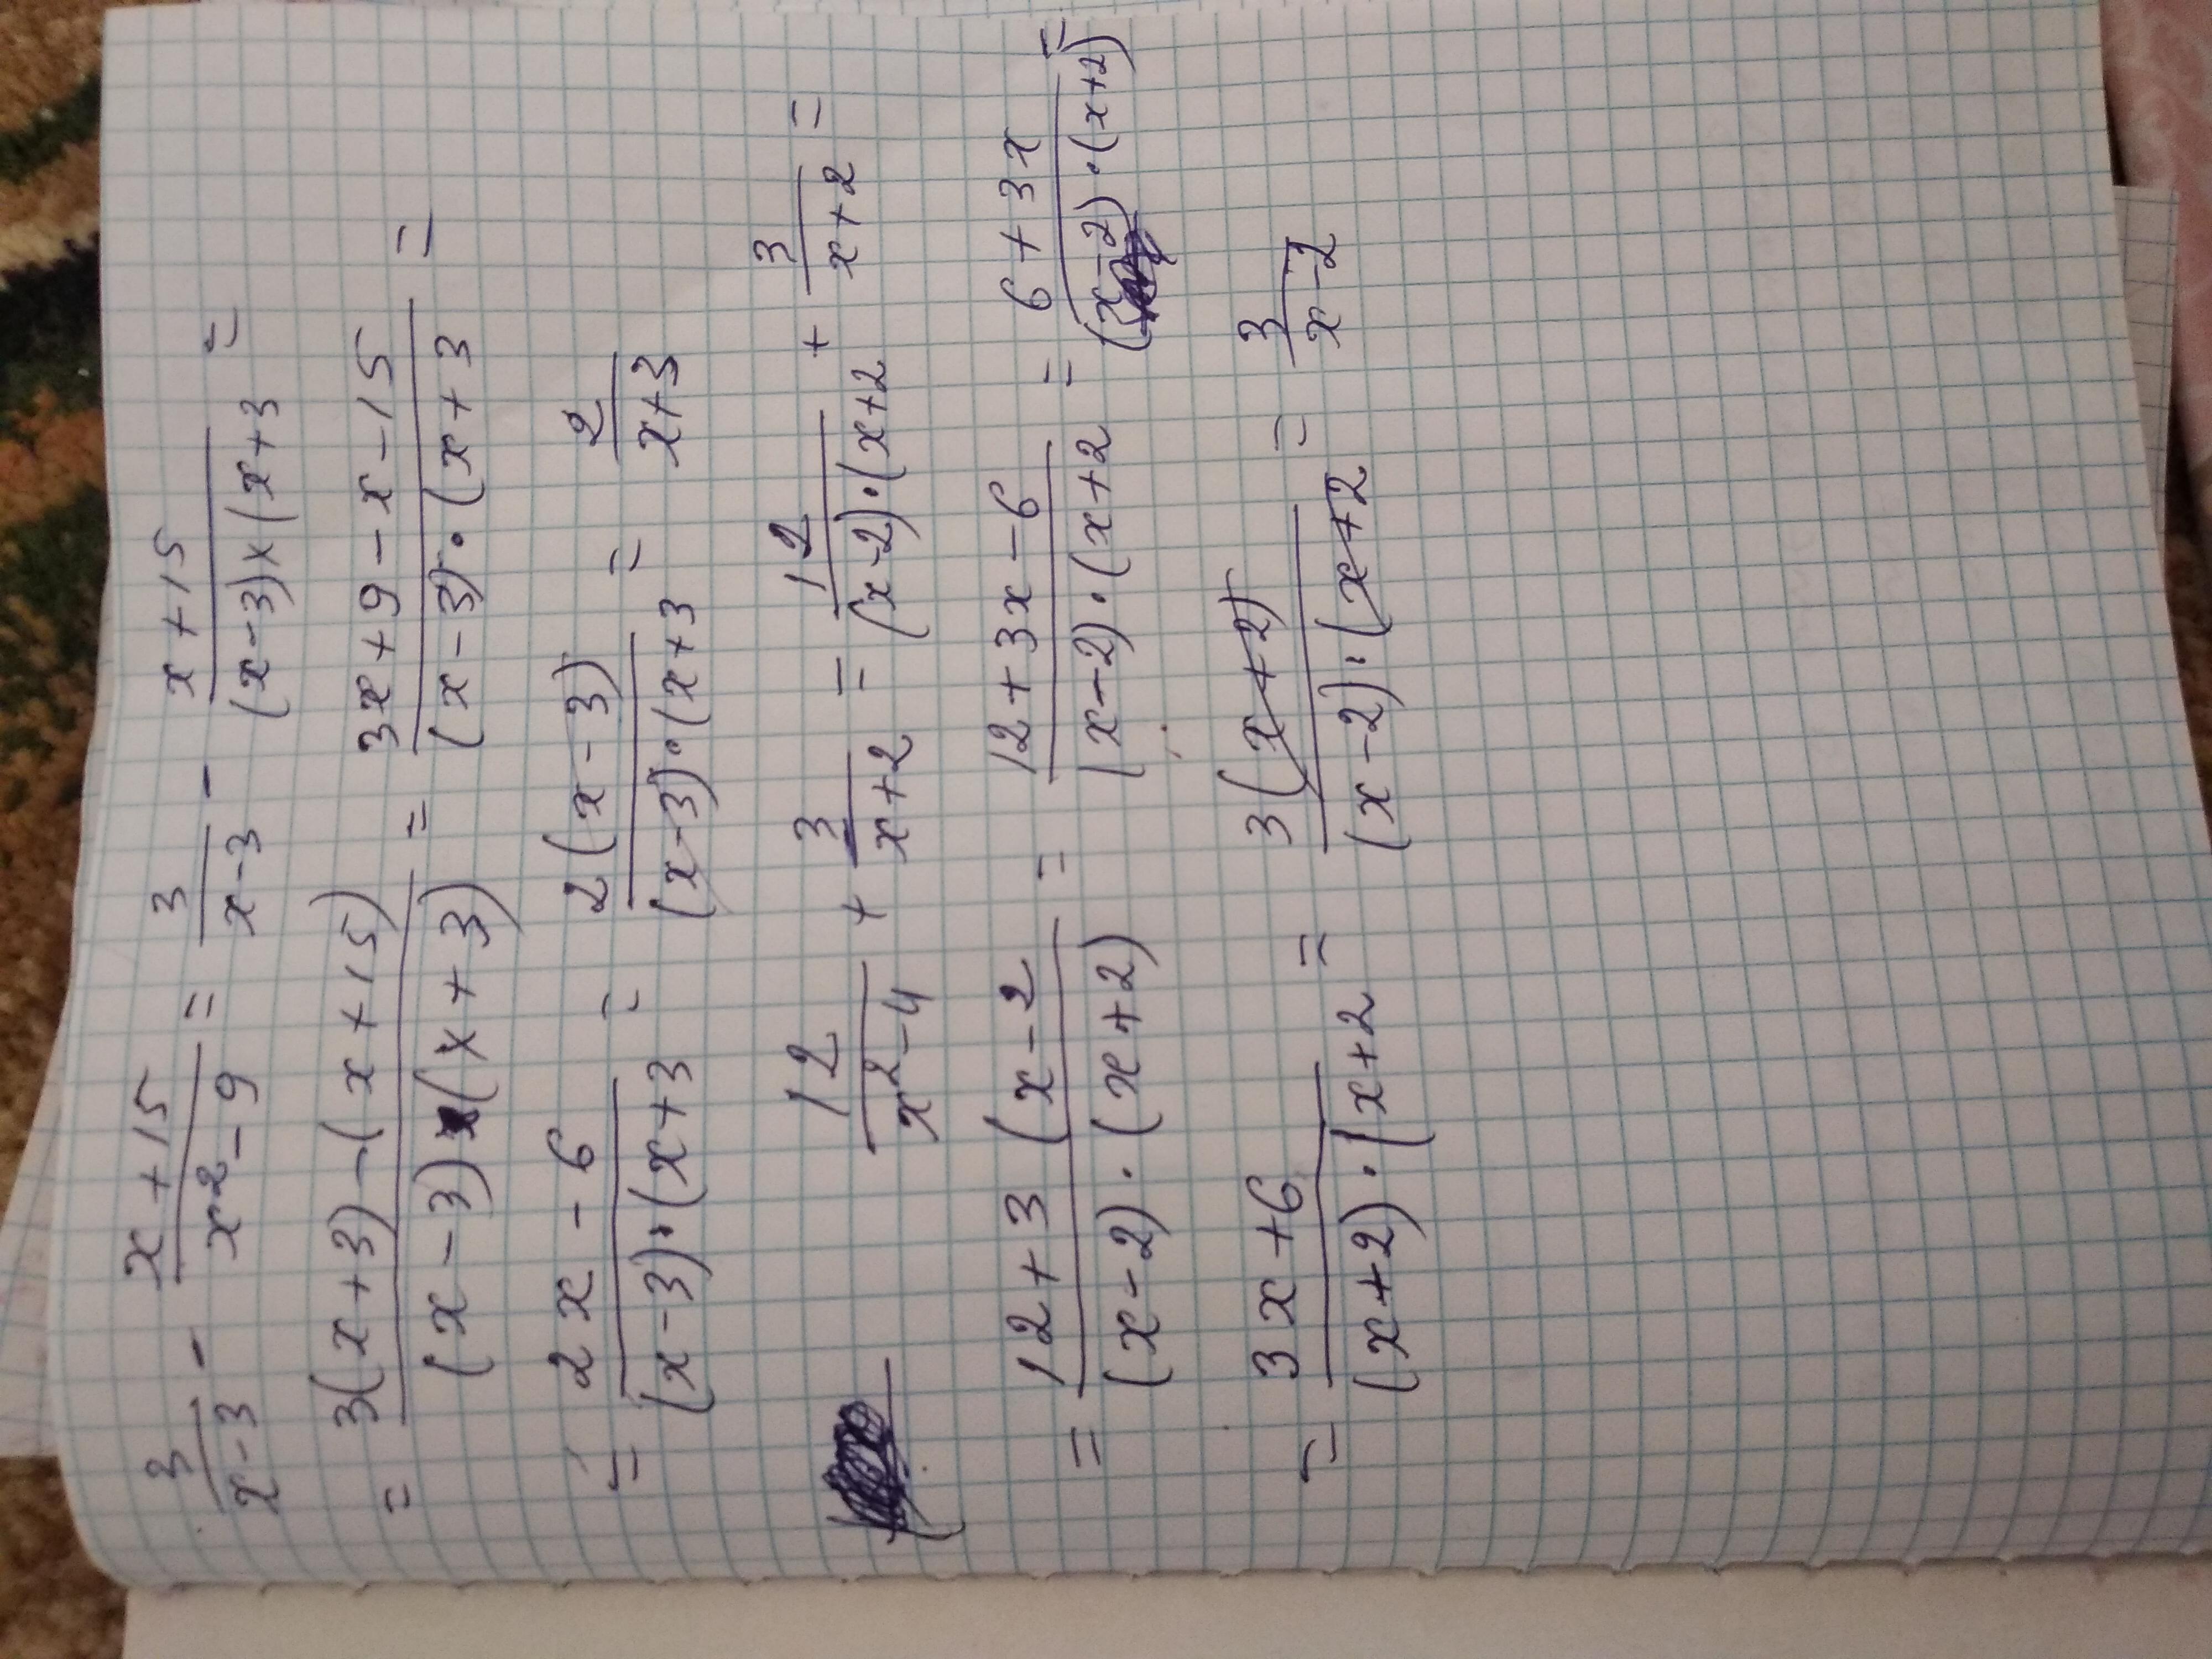 3/(x-3) - (x+15)/(x²-9) = 3/(x-3) - (x+15)/((x-3)×(x+3 =
= (3(x+3)-(x+15))/((x-3)×(x+3)) = (3x+9-x-15)/((x-3)·(x+3 =
= (2x-6)/((x-3)·(x+3 = (2(x-3))/((x-3)·(x+3 = 2/(x+3)
12/(x²-4) + 3/(x+2) = 12/((x-2)·(x+2 + 3/(x+2) =
= (12+3(x-2)/((x-2)·(x+2)) = (12+3x-6)/((x-2)·(x+2 = (6+3x)/((x-2)·(x+2)) =
= (3x+6)/((x+2)·(x+2 = (3(x+2))/((x-2)·(x+2 = 3/(x-2)